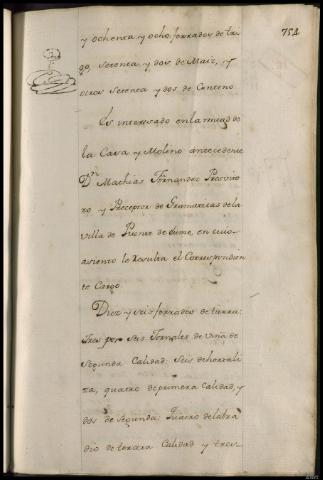 752
y ochenta y ocho ferrados de tri
go, setenta y dos de Maiz, y
otros setenta y dos de Centeno
Es interesado en la mitad de
la Casa y Molino antecedente
Dn Mathias Fernandez Presvite
ro y Preceptor de Gramaticas de la
villa de Puente de Eume, en cuio
asiento le resulta el Correspondien
te Cargo
Diez y seis ferrados de tierra:
tres por seis Jornales de viña de
segunda Calidad: seis de hortali
za, quatro de primera Calidad, y
dos de segunda: Quatro de labra
dio de tercera Calidad y tres